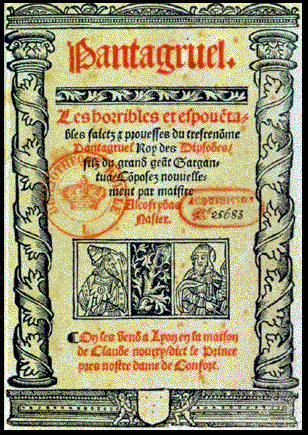 Pantagruel.
Les horribles et espouẽta-
bles faictz ⁊ prouesses du tresrenõme
Pantagruel Roy des Dipsodes/
filz du grand geãt Gargan-
tua/ Cõposez nouuelle-
ment par maistre
Alcofrybas
Nasier.
25683
On les vend a Lyon en la maison
de Claude nourry/ dict le Prince
pres nostre dame de Confort.